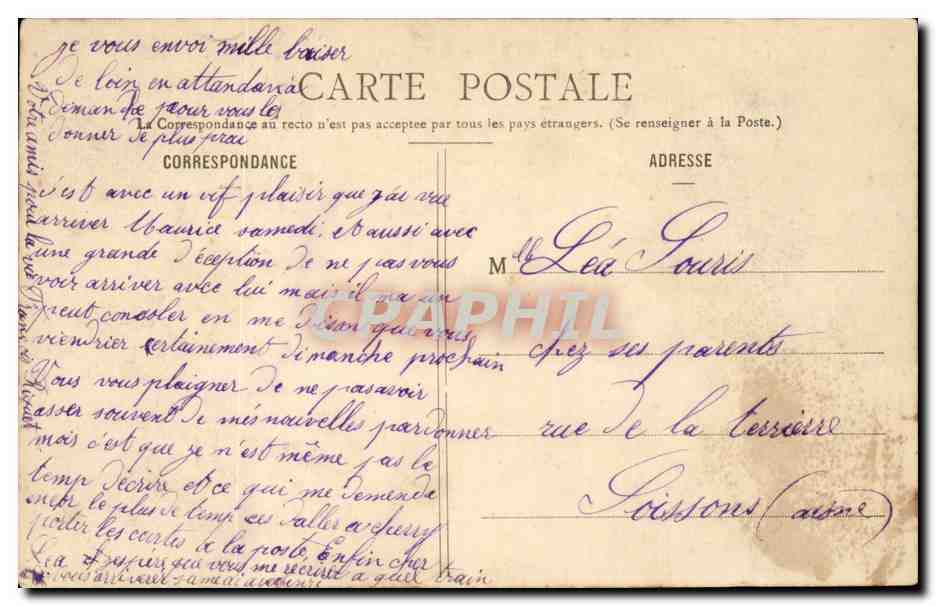 CARTE POSTALE
La Correspondance au recto n'est pas acceptee par tous les pays étrangers. (Se renseigner à la Poste.)
CORRESPONDANCE
ADRESSE
c'est avec un vif plaisir que j'ai vue
arriver Maurice samedi. et aussi avec
une grande déception de ne pas vous
voir arriver avec lui mais il ma un
peut consoler en me disant que vous
viendrier certainement dimanche prochain
Vous vous plaigner de ne pas avoir
asser souvent de mes nouvelles pardonner
mois c'est que je n'est même pas le
temp d'écrire et ce qui me demenda
le plus de temp ces d'aller a cherry
porter les cartes a la poste. Enfin cher
Léa J'espère que vous me récrirer a quel train
vous arriverer samedi
je vous envoi mille baiser
de loin en attendant
demande pour vous les
donner de plus prai
Votre amis pour la vie
Mlle Léa Souris
chez ses parents
rue de la terrierre
Soissons (aisne)
CPAPHIL